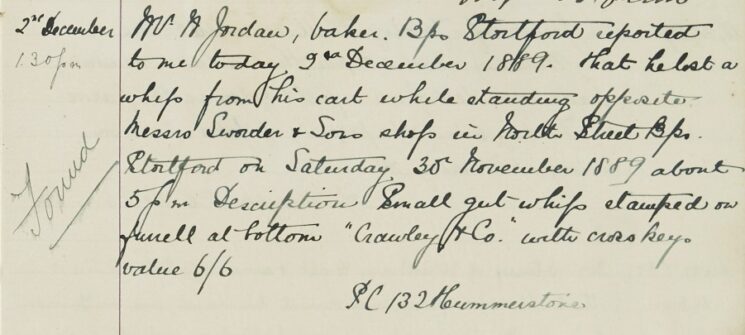 2nd December
1.30pm
Found
Mr W Jordan, baker. Bps Stortford reported
to me today 2nd December 1889. that he lost a
whip from his cart while standing opposite
Messrs Sworder & Sons shop in North Street Bps.
Stortford on Saturday 30th November 1889 about
5pm Description Small gut whip stamped on
furrell at bottom "Crawley & Co." with cross keys
value 6/6
PC 132 Hummerstone